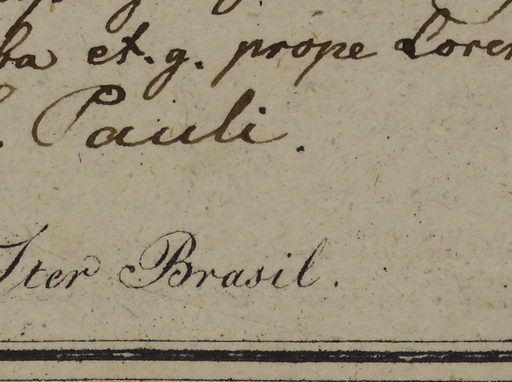 et. g. prope Loren
Pauli.
Iter Brasil.